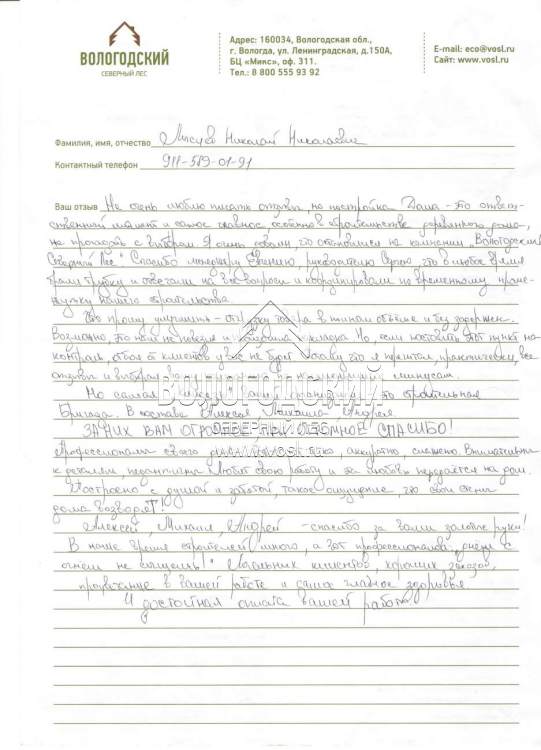 ВОЛОГОДСКИЙ
СЕВЕРНЫЙ ЛЕС
Адрес: 160034, Вологодская обл.,
г. Вологда, ул. Ленинградская, д.150А,
БЦ «Микс», оф. 311.
Тел.: 8 800 555 93 92
E-mail: eco@vosl.ru
Сайт: www.vosl.ru
Фамилия, имя, отчество Николай Николаевич
Контактный телефон 911-589-01-91
Ваш отзыв Не очень люблю писать отзывы, но постройка Дома - это ответ-
ственный момент и самое главное, особенно в строительстве деревянного дома,
не прогадать с выбором. Я очень что остановился на компании "Вологодский
Северный Лес". Спасибо менеджеру Евгению, руководителю Сергею что в любое время
брали трубку и отвечали на все вопросы и координировали по временному проме-
жутку нашего строительства.
Но прошу улучшить - отгрузку товара в полном объёме и без задержек.
Возможно это нам не повезло и Но, если поставить этот пункт на
контроль, отбоя от клиентов у вас не будет. что я прочитал, практически, все
отзывы и выбирал минусам.
Но самая это строительная
Бригада. В составе Алексея Михаила, Андрея.
ЗА НИХ ВАМ ОГРОМНОЕ ПРИОГРОМНОЕ СПАСИБО!
Профессионалы своего дела аккуратно, слажено. Внимательны
к деталям, педантичны. Любят свою работу и эта любовь передаётся на дом.
Построено с душой и заботой, такое ощущение, что свои стены
дома возводят!
Алексей, Михаил, Андрей - спасибо за ваши золотые руки!
В наше время строителей много, а вот профессионалов "днём с
огнём не сыщешь!" клиентов, хороших заказов,
процветание в вашей работе и самое главное здоровья
И достойная оплата вашей работы
ВОЛОГОДСКИЙ
СЕВЕРНЫЙ ЛЕС
www.vosl.ru
ВОЛОГОДСКИЙ
СЕВЕРНЫЙ ЛЕС
www.vosl.ru